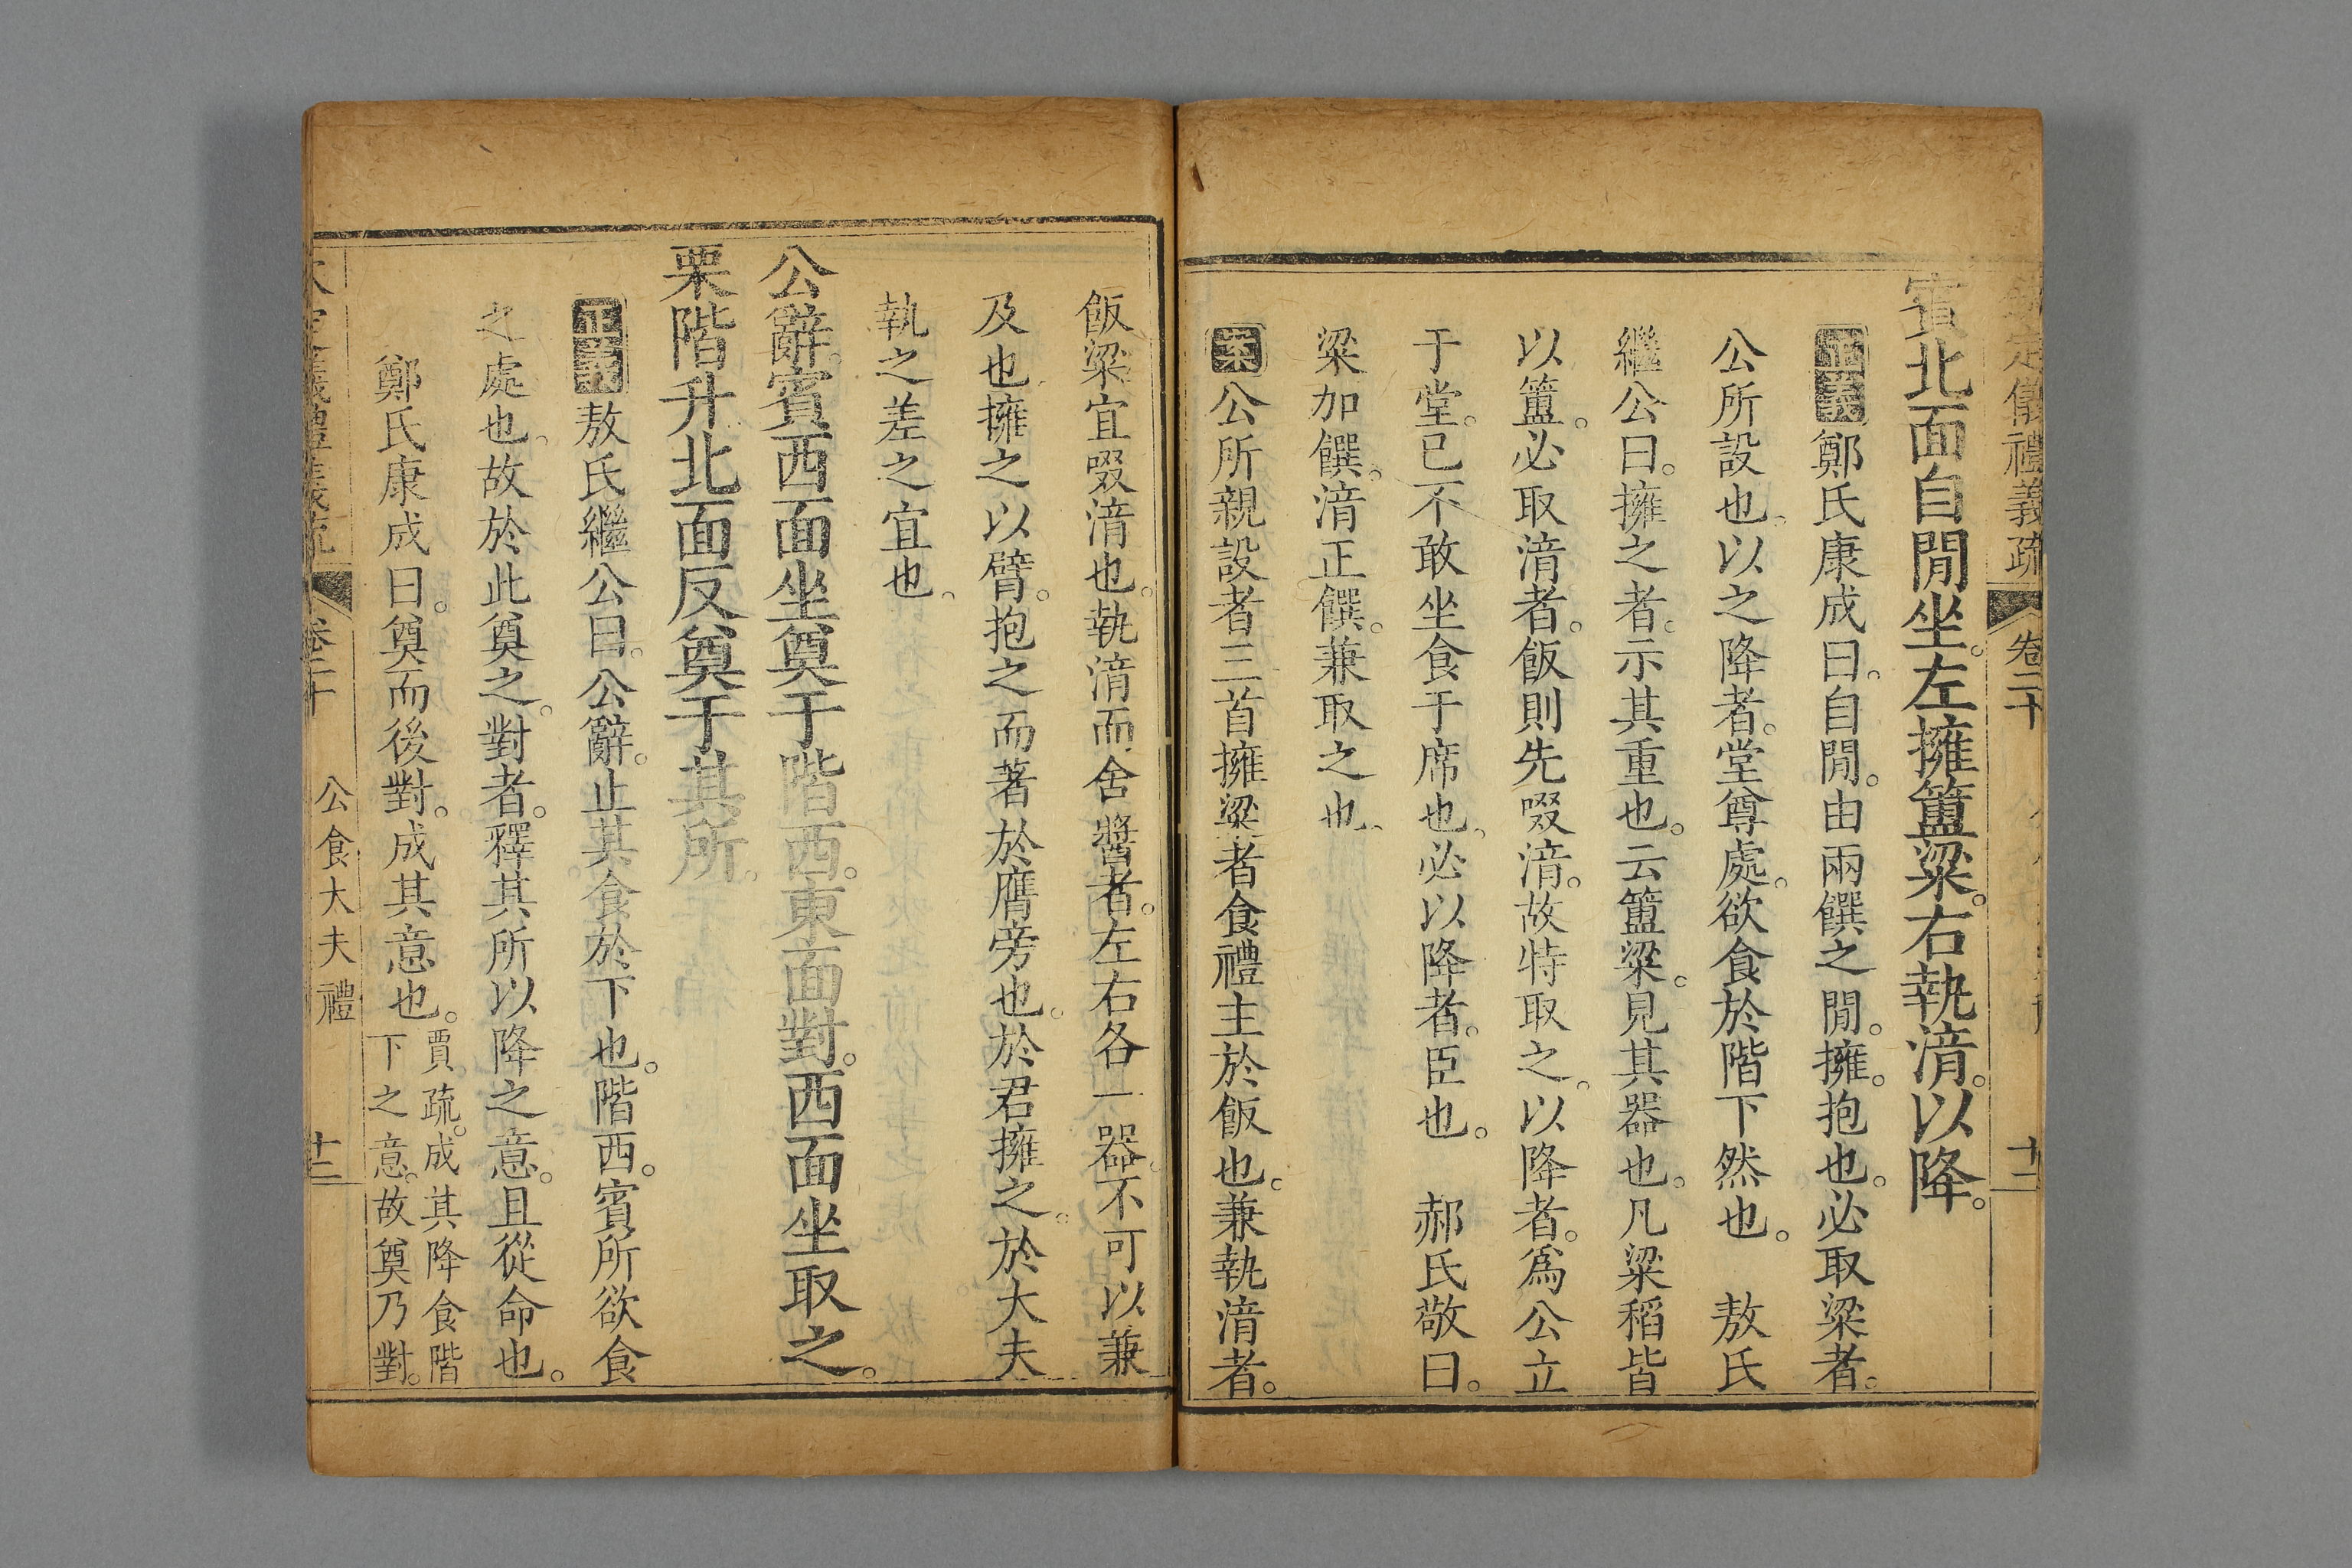 欽定儀禮義疏 卷二十 十二
賓北面自閒坐。左擁簠粱。右執湇。以降。
正義鄭氏康成曰。自閒。由兩饌之閒。擁。抱也。必取粱者。
公所設也。以之降者。堂尊處。欲食於階下然也。 敖氏
繼公曰。擁之者。示其重也。云簠粱。見其器也。凡粱稻皆
以簠。必取湇者。飯則先啜湇。故特取之。以降者。爲公立
于堂。已不敢坐食于席也。必以降者。臣也。 郝氏敬曰。
粱加饌。湇正饌。兼取之也。
案公所親設者三。首擁粱者食禮主於飯也。兼執湇者。
飯粱宜啜湇也。執湇而舍醬者。左右各一器。不可以兼
及也。擁之以臂。抱之而著於膺旁也。於君擁之。於大夫
執之。差之宜也。
公辭。賓西面坐奠于階西。東面對。西面坐取之。
栗階升北面反奠于其所。
正義敖氏繼公曰。公辭。止其食於下也。階西。賓所欲食
之處也。故於此奠之。對者。釋其所以降之意。且從命也。
鄭氏康成曰。奠而後對。成其意也。賈疏。成其降食階下之意。故奠乃對。
卷二十 公食大夫禮 十二